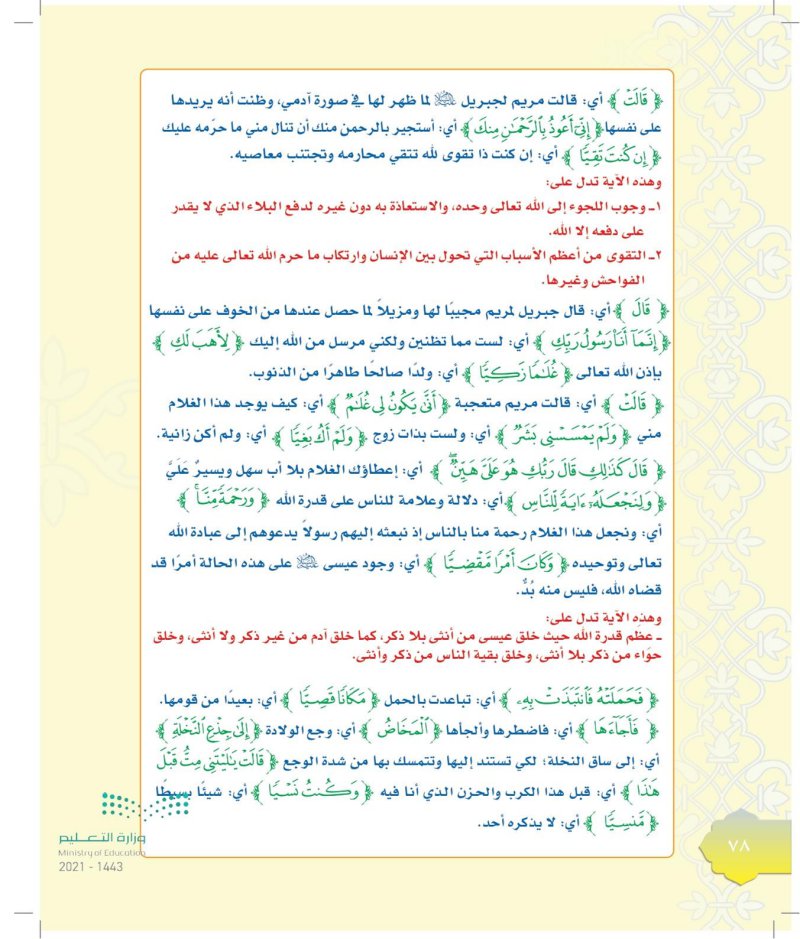 ﴿ قَالَتْ ﴾ أي: قالت مريم لجبريل ﷺ لما ظهر لها في صورة آدمي، وظنت أنه يريدها
على نفسها ﴿ إِنِّيٓ أَعُوذُ بِٱلرَّحۡمَٰنِ مِنكَ ﴾ أي: أستجير بالرحمن منك أن تنال مني ما حرّمه عليك
﴿ إِن كُنتَ تَقِيّٗا ﴾ أي: إن كنت ذا تقوى لله تتقي محارمه وتجتنب معاصيه.
وهذه الآية تدل على:
١ـ وجوب اللجوء إلى الله تعالى وحده، والاستعاذة به دون غيره لدفع البلاء الذي لا يقدر
على دفعه إلا الله.
٢ـ التقوى من أعظم الأسباب التي تحول بين الإنسان وارتكاب ما حرم الله تعالى عليه من
الفواحش وغيرها.
﴿ قَالَ ﴾ أي: قال جبريل لمريم مجيبًا لها ومزيلاً لما حصل عندها من الخوف على نفسها
﴿ إِنَّمَآ أَنَا۠ رَسُولُ رَبِّكِ ﴾ أي: لست مما تظنين ولكني مرسل من الله إليك ﴿ لِأَهَبَ لَكِ ﴾
بإذن الله تعالى ﴿ غُلَٰمٗا زَكِيّٗا ﴾ أي: ولدًا صالحًا طاهرًا من الذنوب.
﴿ قَالَتْ ﴾ أي: قالت مريم متعجبة ﴿ أَنَّىٰ يَكُونُ لِي غُلَٰمٞ ﴾ أي: كيف يوجد هذا الغلام
مني ﴿ وَلَمۡ يَمۡسَسۡنِي بَشَرٞ ﴾ أي: ولست بذات زوج ﴿ وَلَمۡ أَكُ بَغِيّٗا ﴾ أي: ولم أكن زانية.
﴿ قَالَ كَذَٰلِكِ قَالَ رَبُّكِ هُوَ عَلَيَّ هَيِّنٞۖ ﴾ أي: إعطاؤك الغلام بلا أب سهل ويسيرٌ عَليَّ
﴿ وَلِنَجۡعَلَهُۥٓ ءَايَةٗ لِّلنَّاسِ ﴾ أي: دلالة وعلامة للناس على قدرة الله ﴿ وَرَحۡمَةٗ مِّنَّاۚ ﴾
أي: ونجعل هذا الغلام رحمة منا بالناس إذ نبعثه إليهم رسولاً يدعوهم إلى عبادة الله
تعالى وتوحيده ﴿ وَكَانَ أَمۡرٗا مَّقۡضِيّٗا ﴾ أي: وجود عيسى ﷺ على هذه الحالة أمرًا قد
قضاه الله، فليس منه بُدٌّ.
وهذه الآية تدل على:
ـ عظم قدرة الله حيث خلق عيسى من أنثى بلا ذكر، كما خلق آدم من غير ذكر ولا أنثى، وخلق
حوّاء من ذكر بلا أنثى، وخلق بقية الناس من ذكر وأنثى.
﴿ فَحَمَلَتۡهُ فَٱنتَبَذَتۡ بِهِۦ ﴾ أي: تباعدت بالحمل ﴿ مَكَانٗا قَصِيّٗا ﴾ أي: بعيدًا من قومها.
﴿ فَأَجَآءَهَا ﴾ أي: فاضطرها وألجأها ﴿ ٱلۡمَخَاضُ ﴾ أي: وجع الولادة ﴿ إِلَىٰ جِذۡعِ ٱلنَّخۡلَةِ ﴾
أي: إلى ساق النخلة؛ لكي تستند إليها وتتمسك بها من شدة الوجع ﴿ قَالَتۡ يَٰلَيۡتَنِي مِتُّ قَبۡلَ
هَٰذَا ﴾ أي: قبل هذا الكرب والحزن الذي أنا فيه ﴿ وَكُنتُ نَسۡيٗا ﴾ أي: شيئًا بسيطًا
﴿ مَّنسِيّٗا ﴾ أي: لا يذكره أحد.
وزارة التعليم
Ministry of Education
2021 - 1443
٧٨